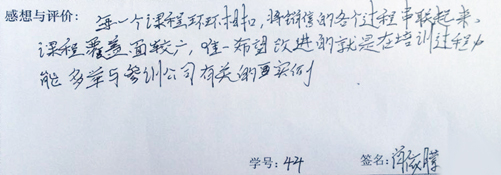 感想与评价：每一个课程环环相扣，将销售的各个过程串联起来，
课程覆盖面较广，唯一希望改进的就是在培训过程为
能多举与参训公司有关的更实例
学号：44 签名：